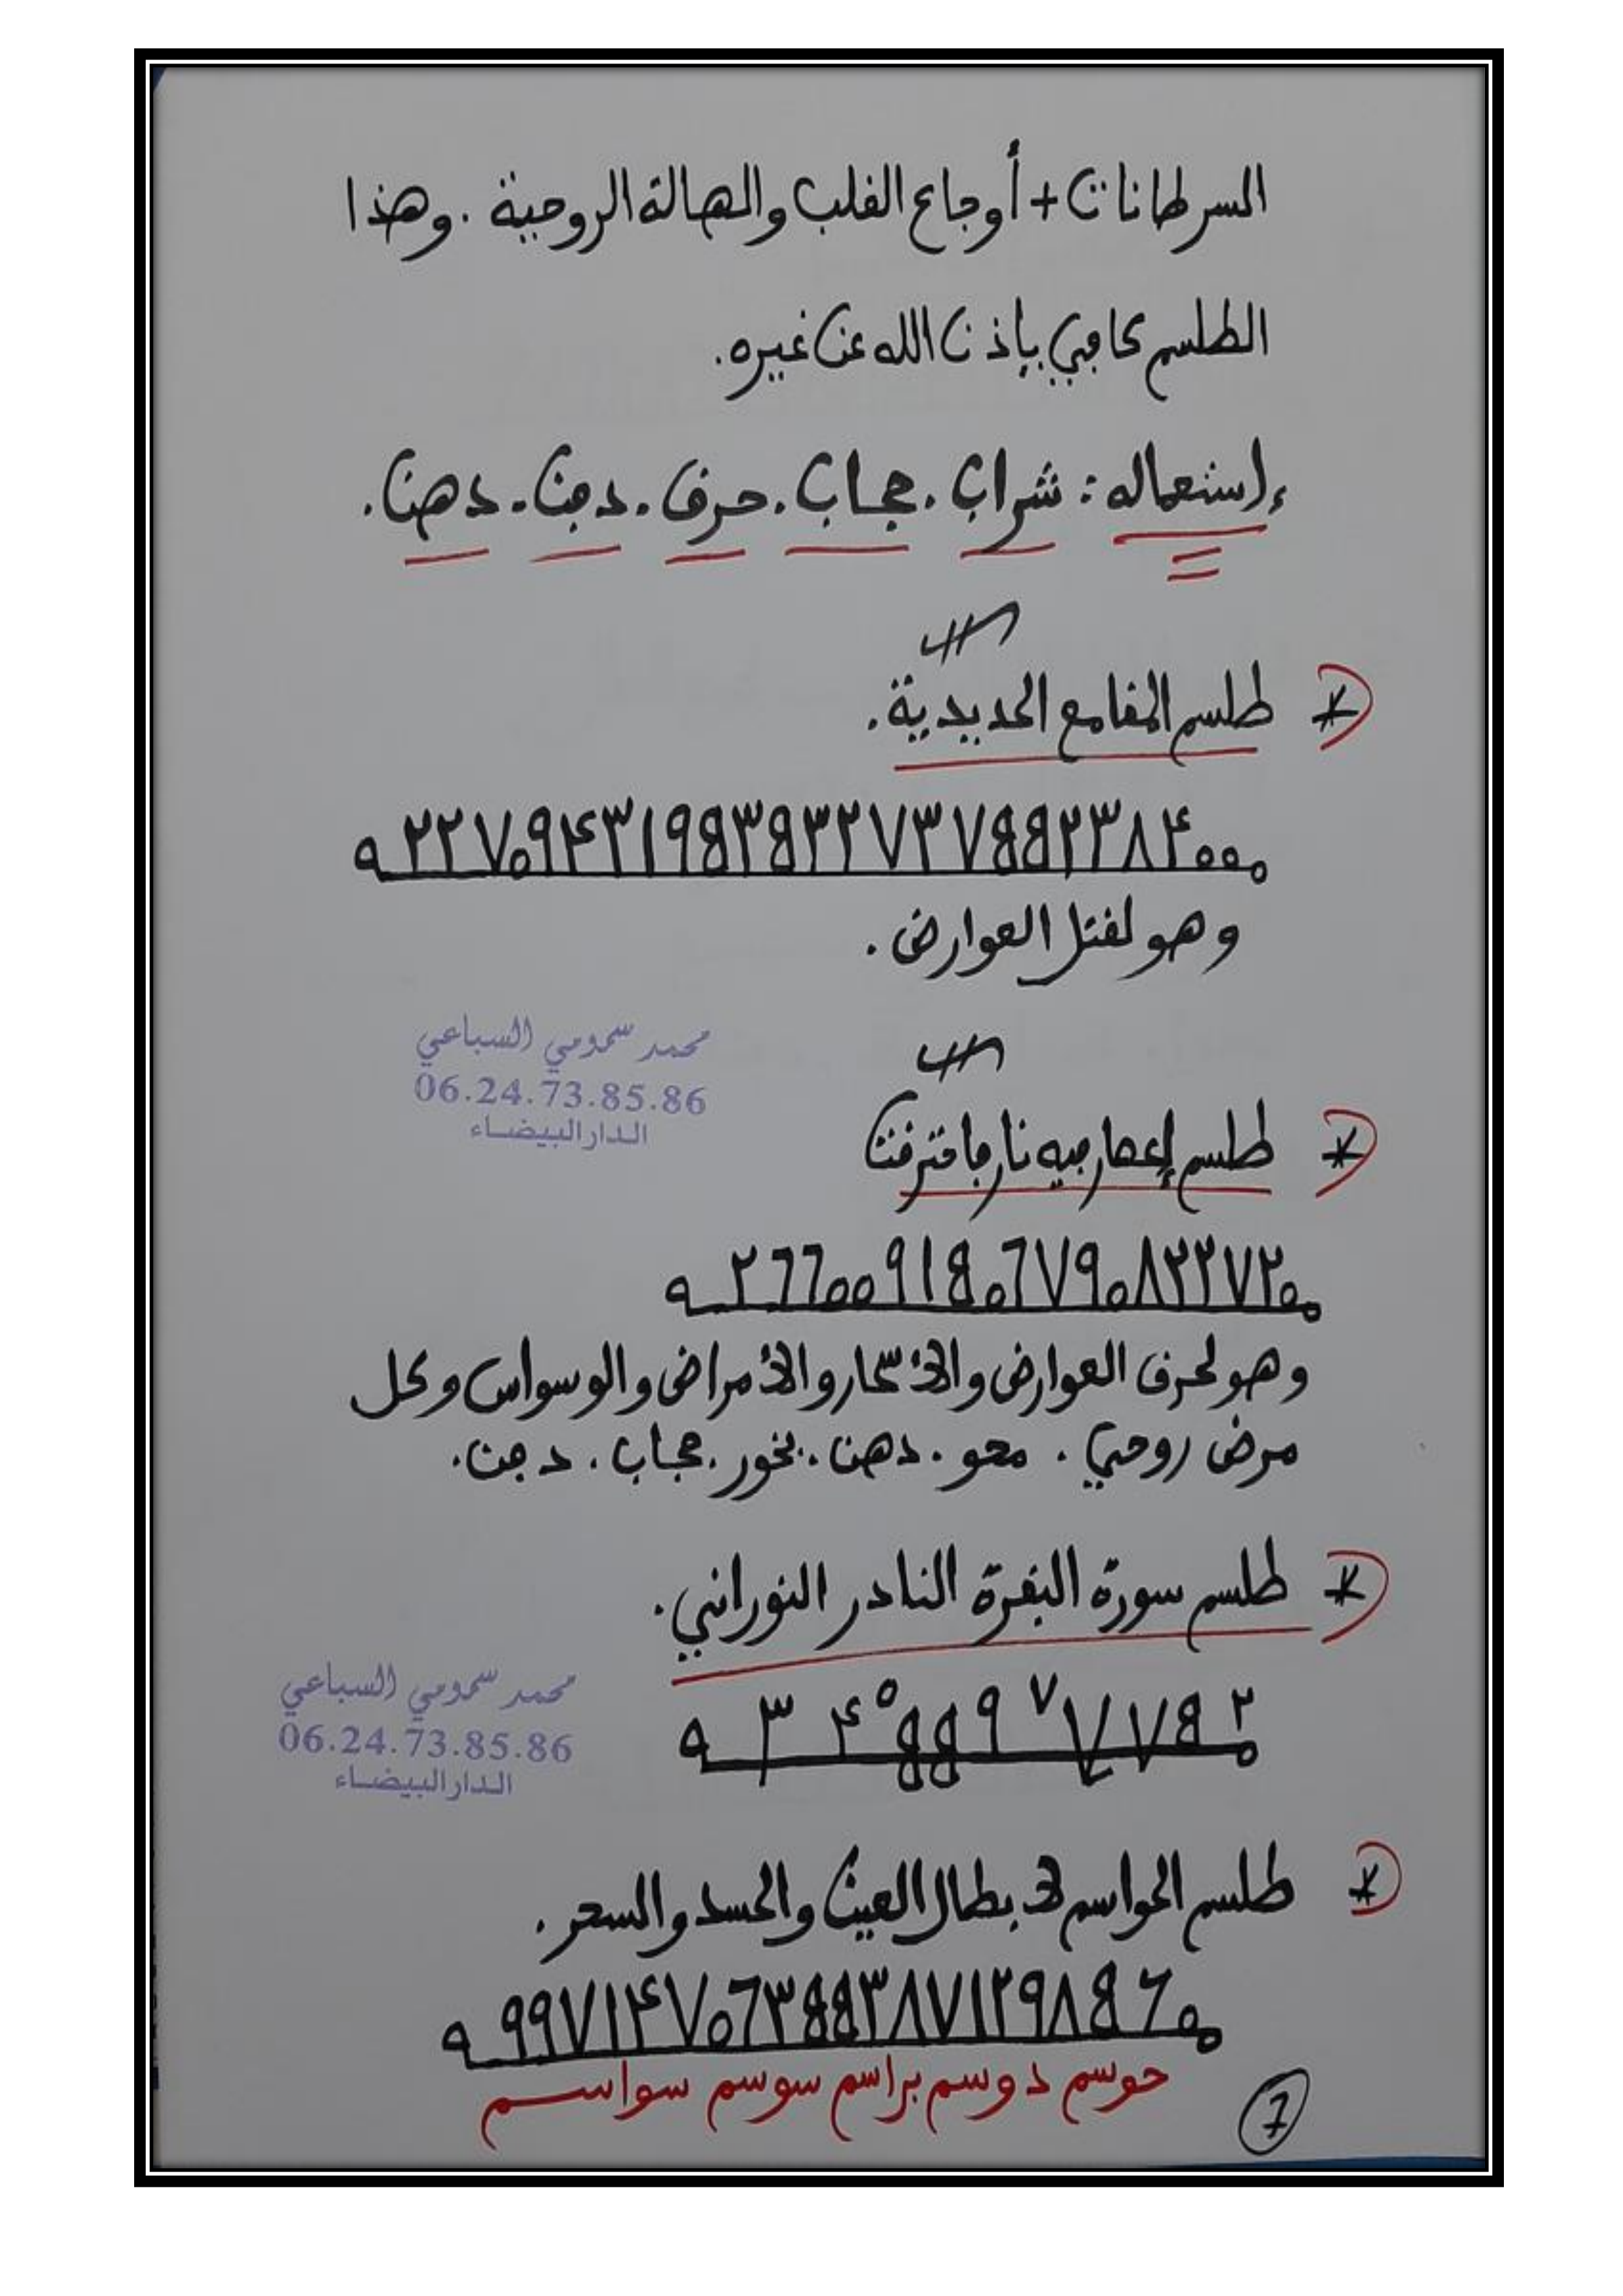 السرطانات + أوجاع القلب والهالة الروحية . وهذا
الطلسم كافي بإذن الله عن غيره.
إستعماله : شراب . حجاب . حرق . دفن . دهن .
طلسم المقامع الحديدية .
وهو لقتل العوارض .
محمد سمومي السباعي
06.24.73.85.86
الدار البيضاء
* طلسم إعصار فيه نار فاحترقت
وهو لحرق العوارض والأسحار والأمراض والوسواس وكل
مرض روحي . محو . دهن . بخور . حجاب . دفن .
* طلسم سورة البقرة النادر النوراني .
محمد سمومي السباعي
06.24.73.85.86
الدار البيضاء
* طلسم الحواسم لإبطال العين والحسد والسحر .
حوسم دوسم براسم سوسم سواسم
7